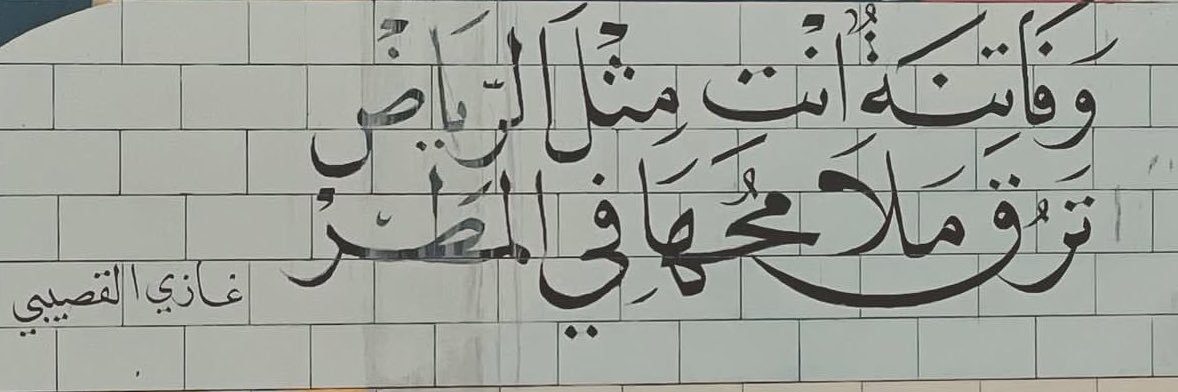 وَفَاتِنَةٌ أَنْتِ مِثْلَ الرِّيَاضْ
تَرُقُّ مَلَامِحُهَا فِي الْمَطَرْ
غازي القصيبي